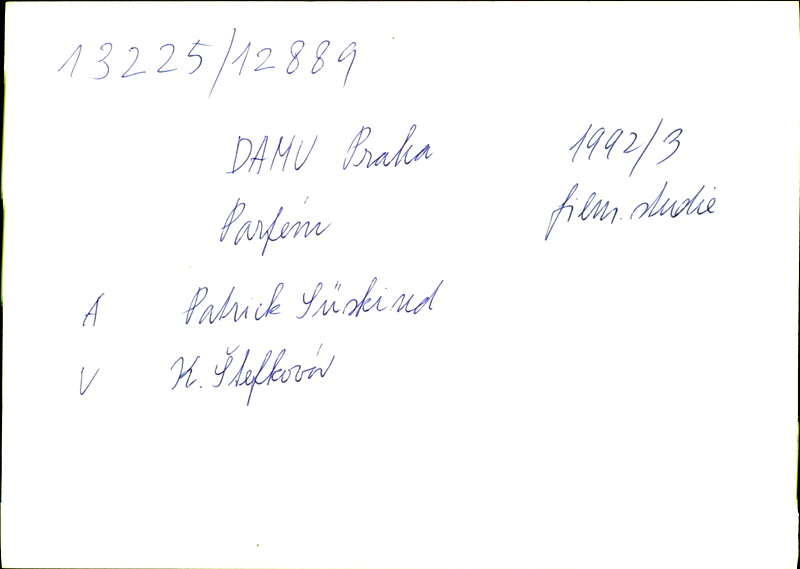 13225/12889
DAMU Praha 1992/3
Parfém film. studie
A Patrick Süskind
V K. Štefková